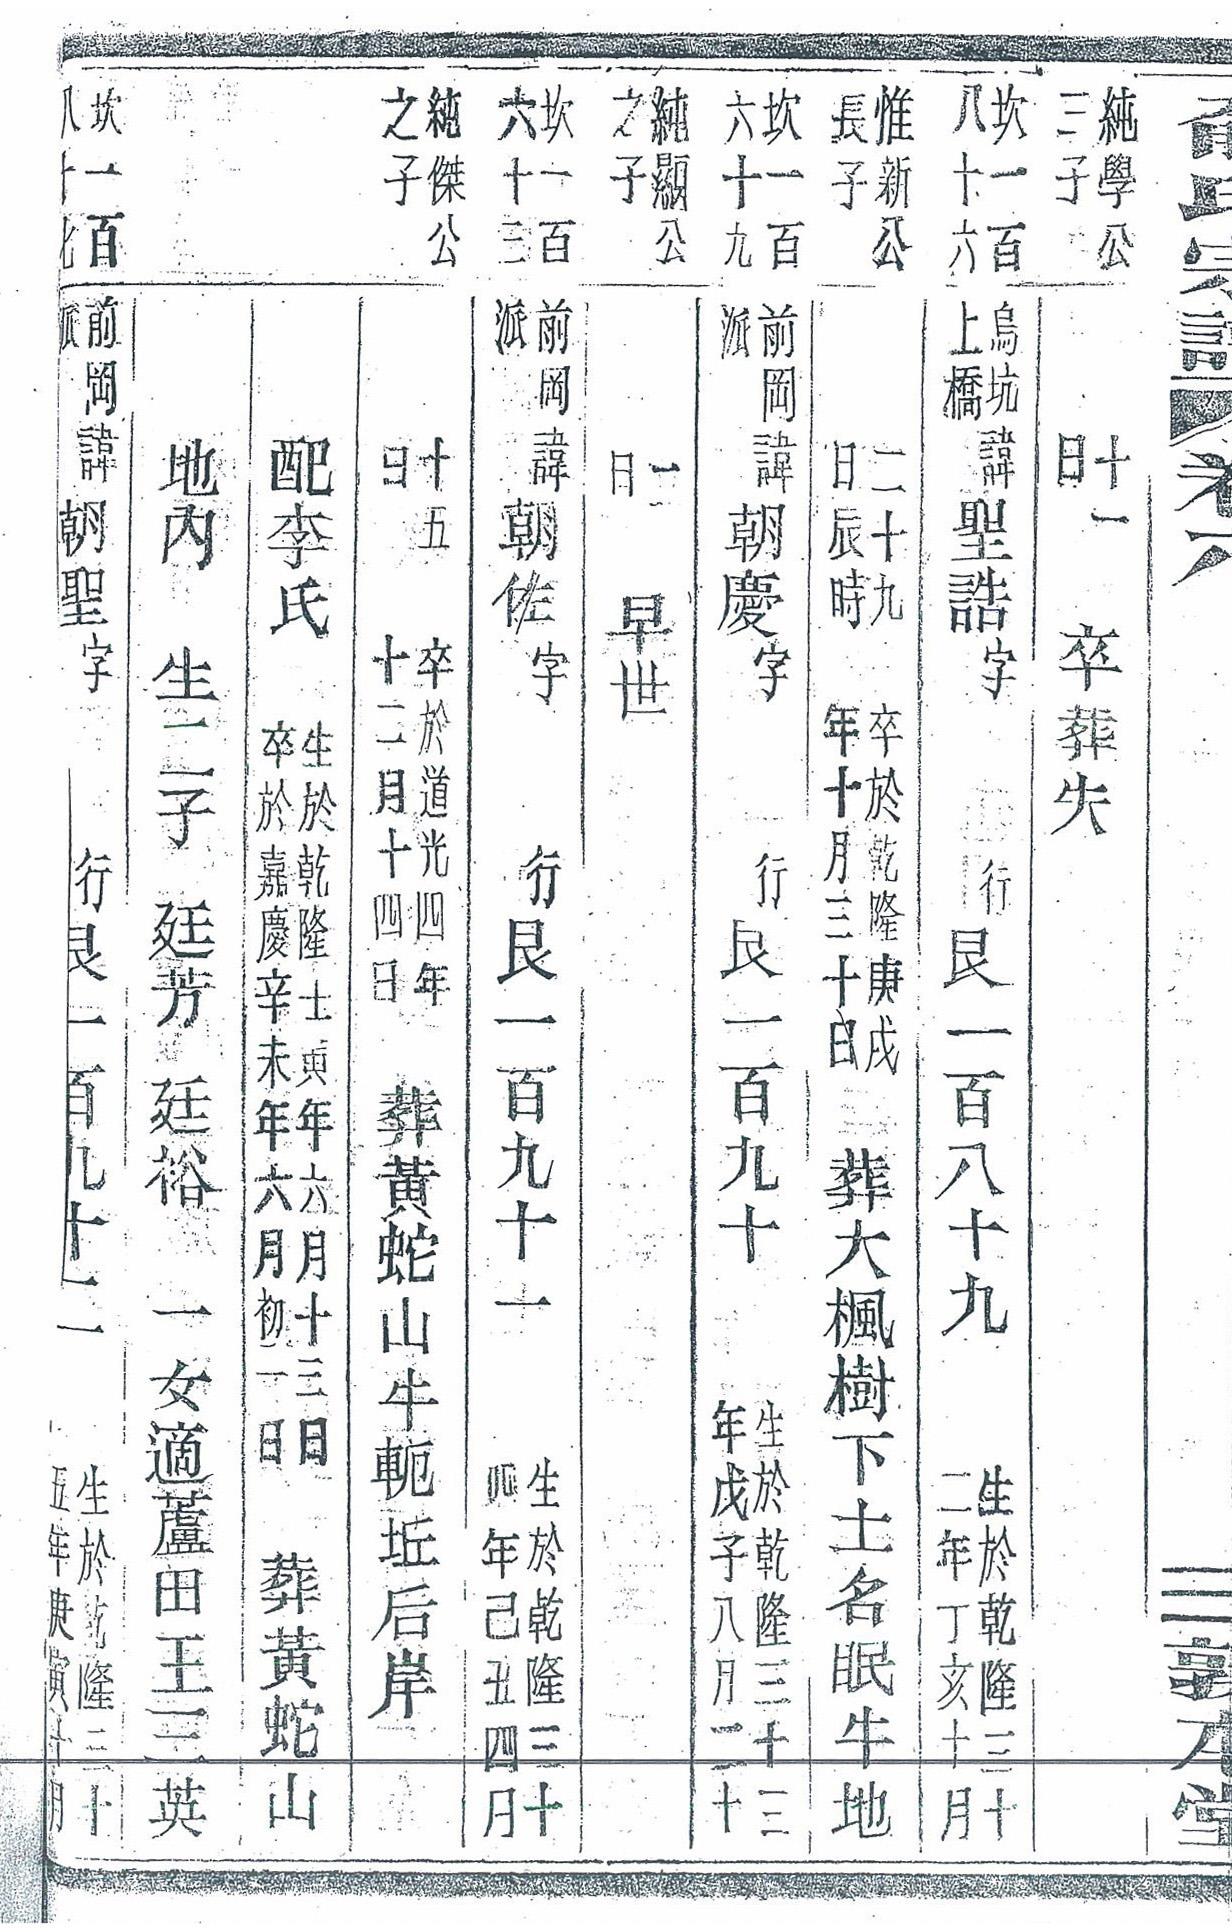 氏宗譜 卷六 三 敦本堂
純學公
三子
十一
日
卒葬失
坎一百
八十六
烏坑
上橋
諱聖誥字 行艮一百八十九
生於乾隆三十
二年丁亥十月
惟新公
長子
二十九
日辰時
卒於乾隆庚戌
年十月三十日
葬大楓樹下土名眠牛地
坎一百
六十九
前岡
派
諱朝慶字 行艮一百九十
生於乾隆三十三
年戊子八月二十
純顯公
之子
二
日
早世
坎一百
六十三
前岡
派
諱朝佐字 行艮一百九十一
生於乾隆三十
四年己丑四月
純傑公
之子
十五
日
卒於道光四年
十二月十四日
葬黃蛇山牛軛坵后岸
配李氏
生於乾隆壬寅年六月十三日
卒於嘉慶辛未年六月初一日
葬黃蛇山
地內 生二子 廷芳 廷裕 一女適蘆田王三英
坎一百
八十
前岡
派
諱朝聖字 行艮一百九十二
生於乾隆三十
五年庚寅十